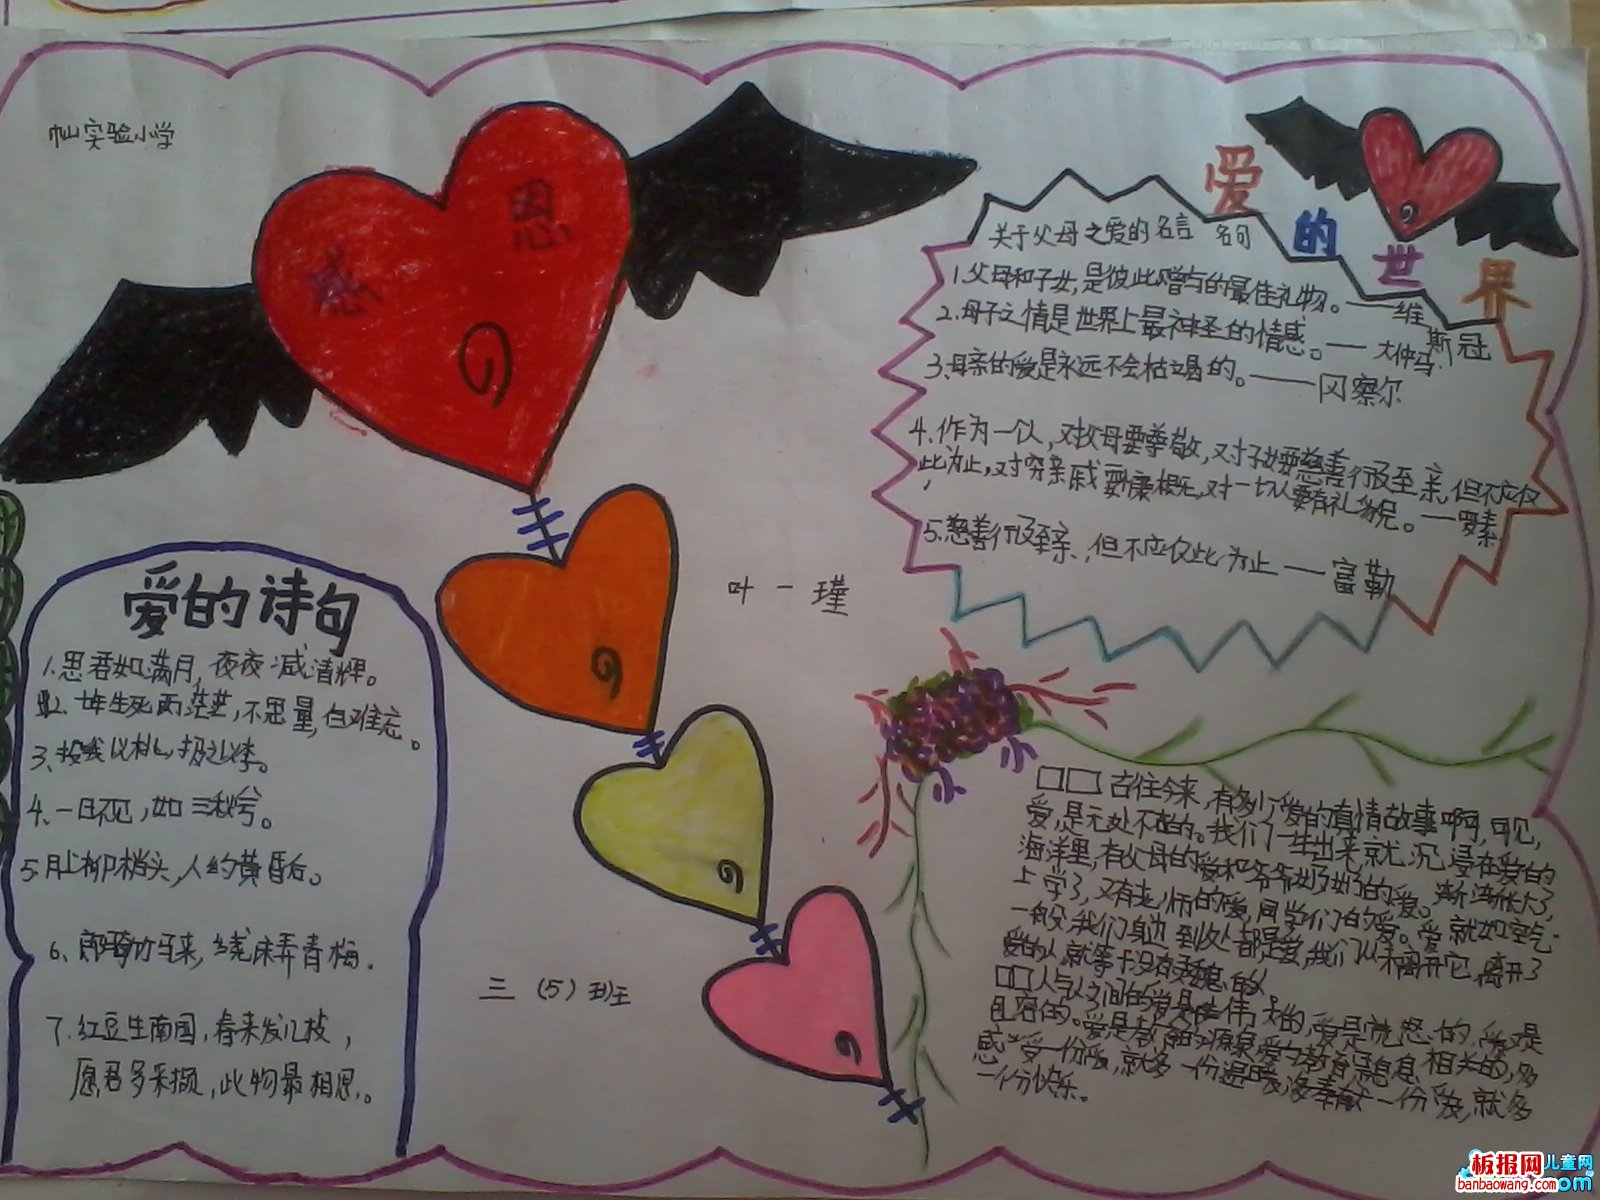 实验小学
感恩
爱的诗句
1.思君如满月,夜夜减清辉。
2.十年生死两茫茫,不思量,自难忘。
3.投我以桃,报之以李。
4.一日不见,如三秋兮。
5.月上柳梢头,人约黄昏后。
6.郎骑竹马来,绕床弄青梅.
7.红豆生南国,春来发几枝,
愿君多采撷,此物最相思。
叶一瑾
三(5)班
爱的世界
关于父母之爱的名言名句
1.父母和子女,是彼此赠与的最佳礼物。——维斯冠
2.母子之情是世界上最神圣的情感。——大仲马
3.母亲的爱是永远不会枯竭的。——冈察尔
4.作为一个人,对父母要尊敬,对子女要慈善行及至亲,但不应仅
此为止,对穷亲戚要慷慨,对一切人要有礼貌。——罗素
5.慈善行及至亲,但不应仅此为止——富勒
□□古往今来,有多少爱的真情故事啊,可见,
爱,是无处不在的。我们一生出来就沉浸在爱的
海洋里,有父母的爱和爷爷奶奶的爱。渐渐长大了,
上学了,又有老师的爱,同学们的爱。爱就如空气
一般,我们身边到处都是爱,我们从未离开它,离开了
爱的人就等于没有灵魂的人
□□人与人之间的爱是伟大的,爱是宽恕的,爱是
包容的。爱是教育的源泉,爱与教育息息相关的,多
感受一份爱,就多一份温暖,多奉献一份爱,就多
一份快乐。
板报网
儿童网
banbaowang.com